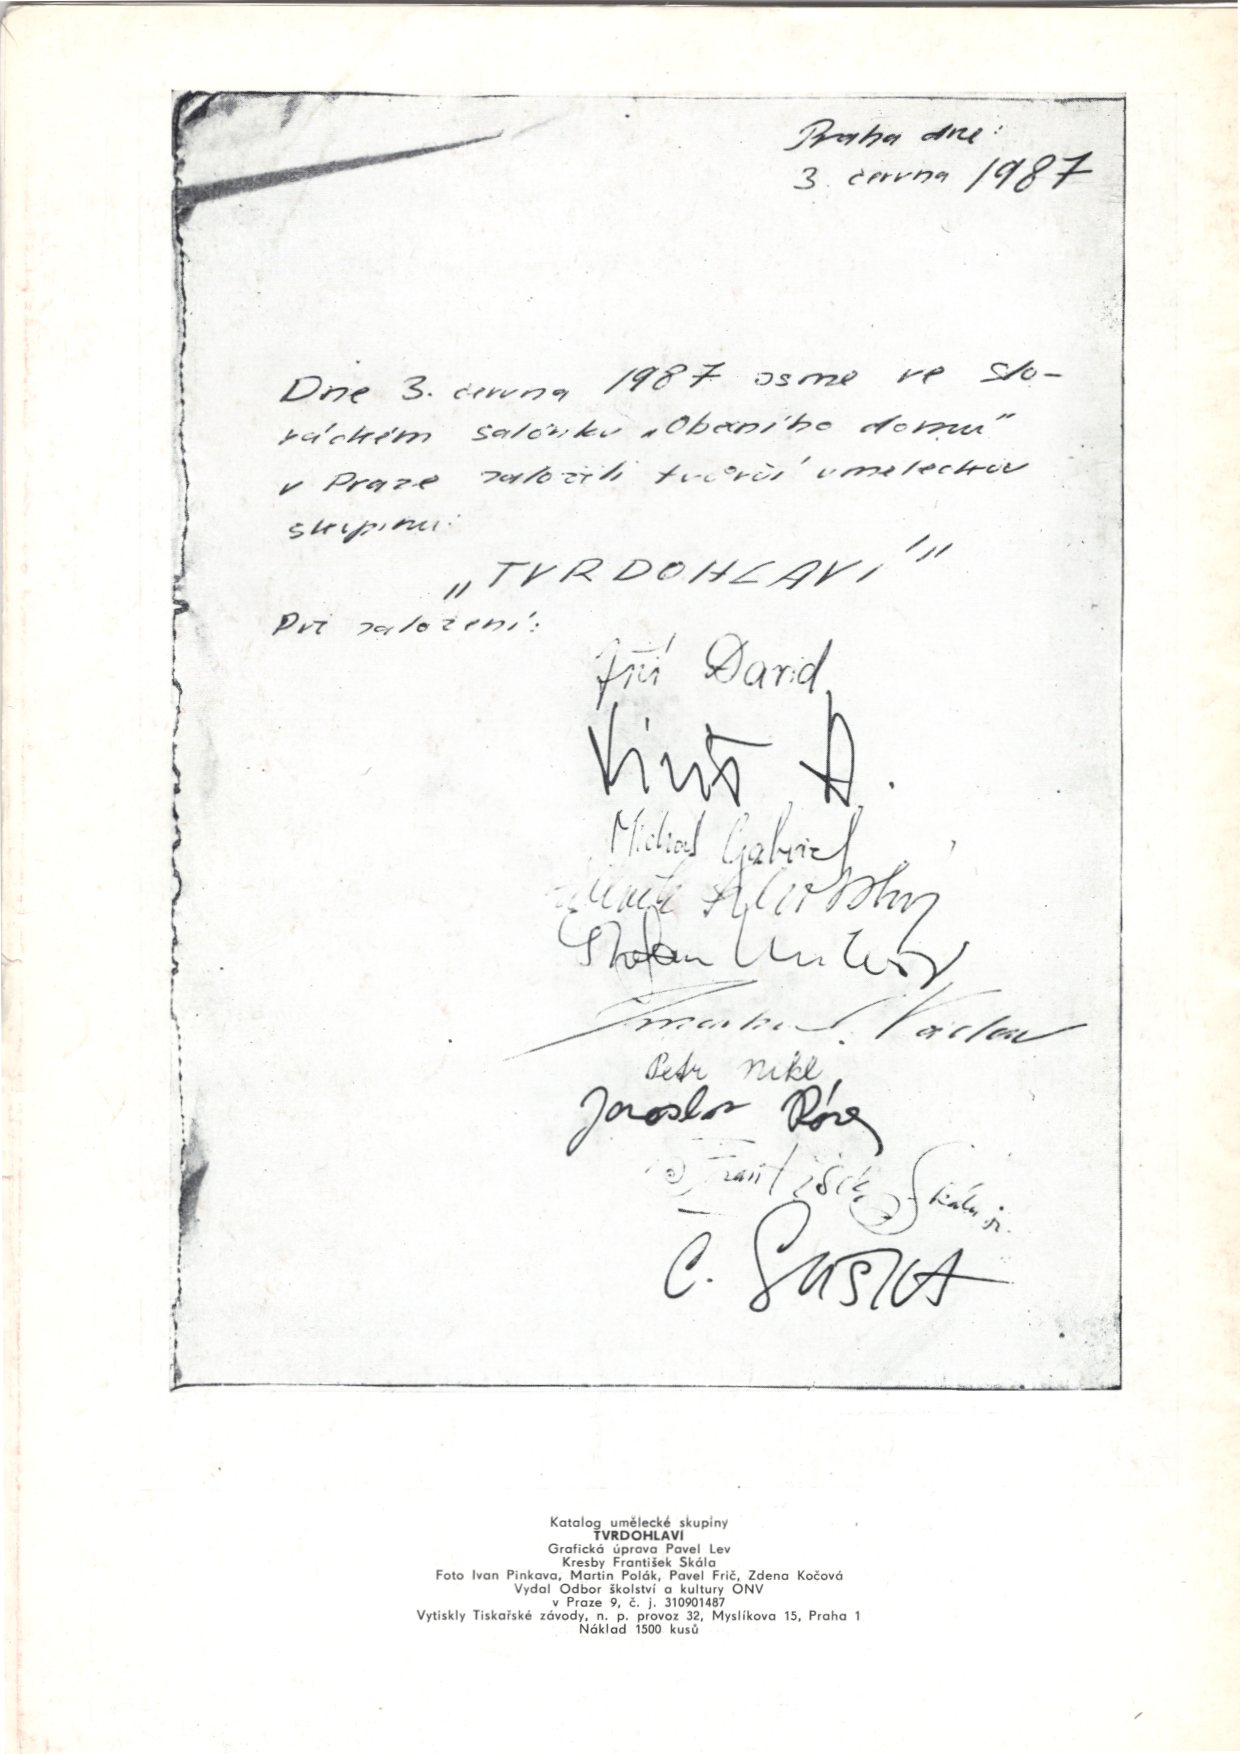 Praha dne:
3. června 1987
Dne 3. června 1987 jsme ve slo-
váckém salónku „Obecního domu"
v Praze založili tvůrčí uměleckou
skupinu:
„TVRDOHLAVÍ"
Při založení:
Jiří David
Michal Gabriel
Zdeněk Lhotský
Stefan Milkov
Václav
Petr Nikl
Jaroslav Róna
František Skála jr.
Č. SUŠKA
Katalog umělecké skupiny
TVRDOHLAVÍ
Grafická úprava Pavel Lev
Kresby František Skála
Foto Ivan Pinkava, Martin Polák, Pavel Frič, Zdena Kočová
Vydal Odbor školství a kultury ONV
v Praze 9, č. j. 310901487
Vytiskly Tiskařské závody, n. p. provoz 32, Myslíkova 15, Praha 1
Náklad 1500 kusů